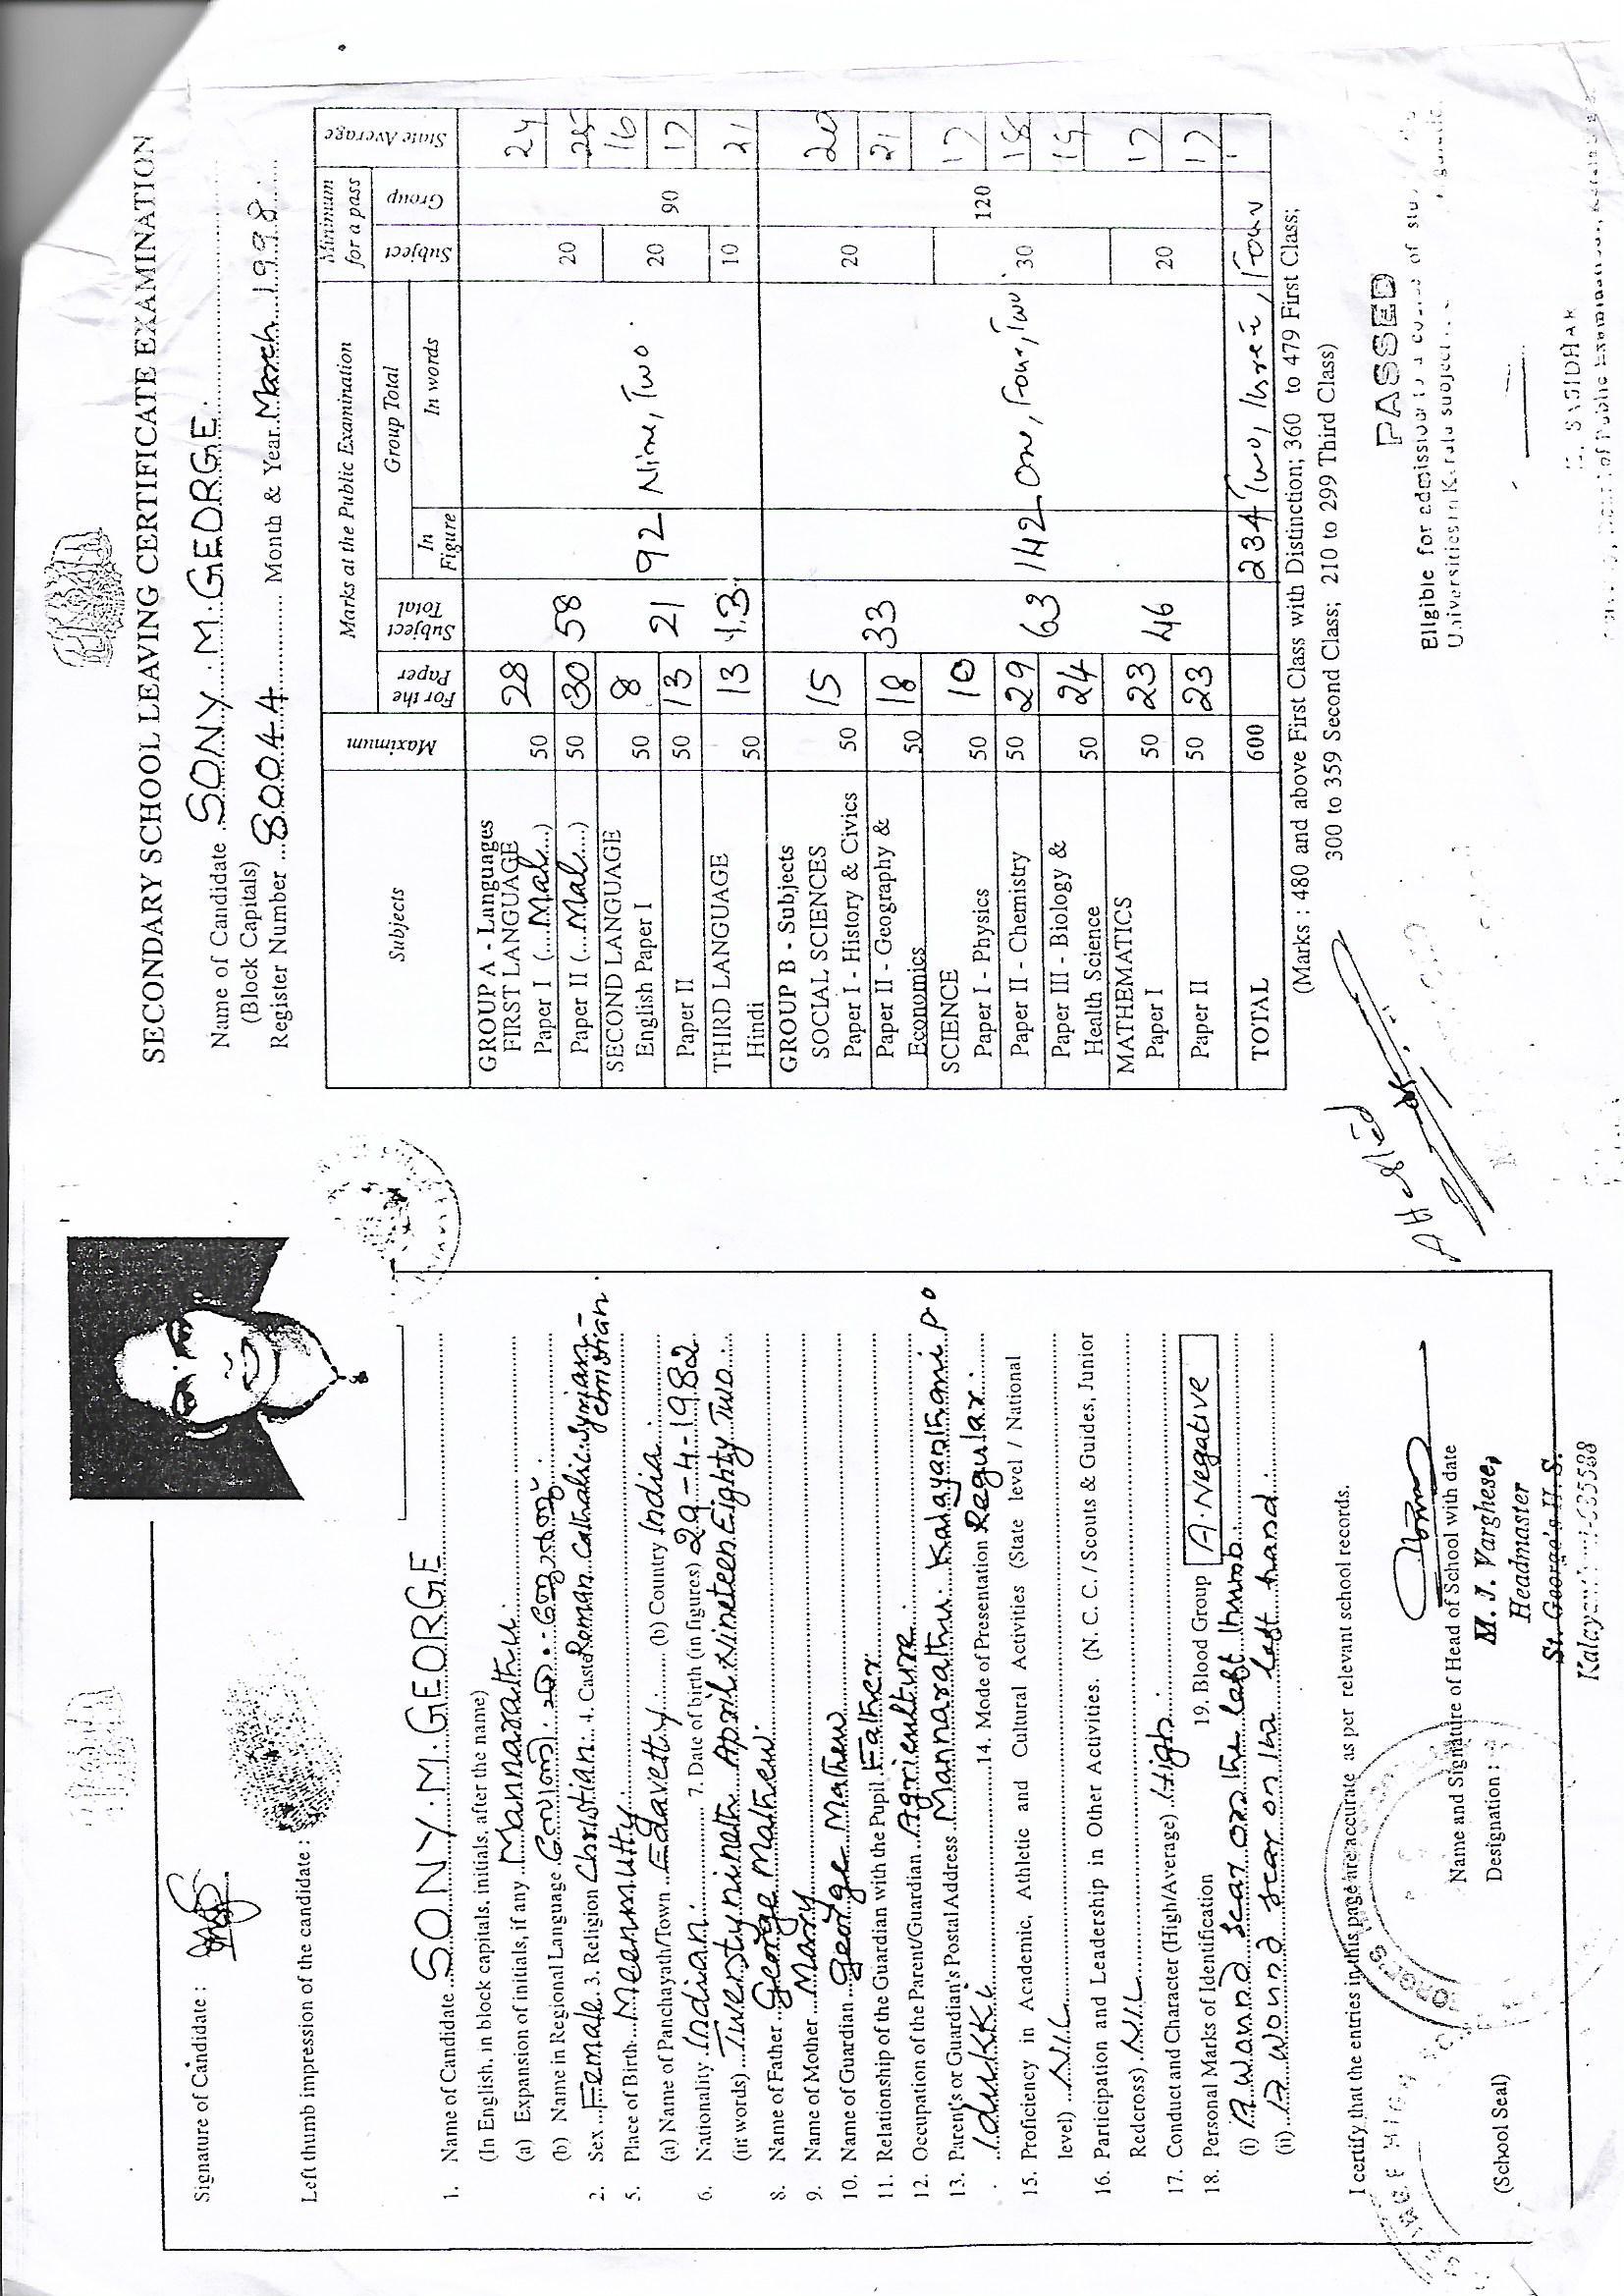 Signature of Candidate :
Left thumb impression of the candidate :
1. Name of Candidate SONY. M. GEORGE
(In English, in block capitals, initials, after the name)
(a) Expansion of initials, if any Mannarathu
(b) Name in Regional Language
2. Sex Female 3. Religion Christian 4. Caste Roman Catholic Syrian -
Christian
5. Place of Birth Meenmutty
(a) Name of Panchayath/Town Edavetty (b) Country India
6. Nationality Indian 7. Date of birth (in figures) 29-4-1982
(in words) Twenty nineth April Nineteen Eighty Two
8. Name of Father George Mathew
9. Name of Mother Mary
10. Name of Guardian George Mathew
11. Relationship of the Guardian with the Pupil Father
12. Occupation of the Parent/Guardian Agriculture
13. Parent's or Guardian's Postal Address Mannarathu Kalayanthani P O
Idukki 14. Mode of Presentation Regular
15. Proficiency in Academic, Athletic and Cultural Activities (State level / National
level) NIL
16. Participation and Leadership in Other Activities. (N. C. C. / Scouts & Guides, Junior
Redcross) NIL
17. Conduct and Character (High/Average) High
18. Personal Marks of Identification 19. Blood Group A. Negative
(i) A wound scar on the left thumb
(ii) A wound scar on the left hand
I certify that the entries in this page are accurate as per relevant school records.
Name and Signature of Head of School with date
Designation :
M. J. Varghese,
Headmaster
St. George's H. S.
(School Seal)
SECONDARY SCHOOL LEAVING CERTIFICATE EXAMINATION
Name of Candidate SONY. M. GEORGE
(Block Capitals)
Register Number 80044 Month & Year March 1998
Subjects Maximum Marks at the Public Examination Minimum for a pass State Average
For the Paper Subject Total Group Total Subject Group
In Figure In words
GROUP A - Languages
FIRST LANGUAGE
Paper I (...Mal...) 50 28 24
Paper II (...Mal...) 50 30 58 20 25
SECOND LANGUAGE
English Paper I 50 8 92 Nine, Two 20 90 16
Paper II 50 13 21 17
THIRD LANGUAGE
Hindi 50 13 13 10 21
GROUP B - Subjects
SOCIAL SCIENCES
Paper I - History & Civics 50 15 20 20
Paper II - Geography &
Economics 50 18 33 21
SCIENCE
Paper I - Physics 50 10 120 17
Paper II - Chemistry 50 29 63 142 One, Four, Two 30 18
Paper III - Biology &
Health Science 50 24 19
MATHEMATICS
Paper I 50 23 46 20 17
Paper II 50 23 17
TOTAL 600 234 Two, three, Four
(Marks : 480 and above First Class with Distinction; 360 to 479 First Class;
300 to 359 Second Class; 210 to 299 Third Class)
PASSED
Eligible for admission to a course of
Universities in Kerala subject
Attested